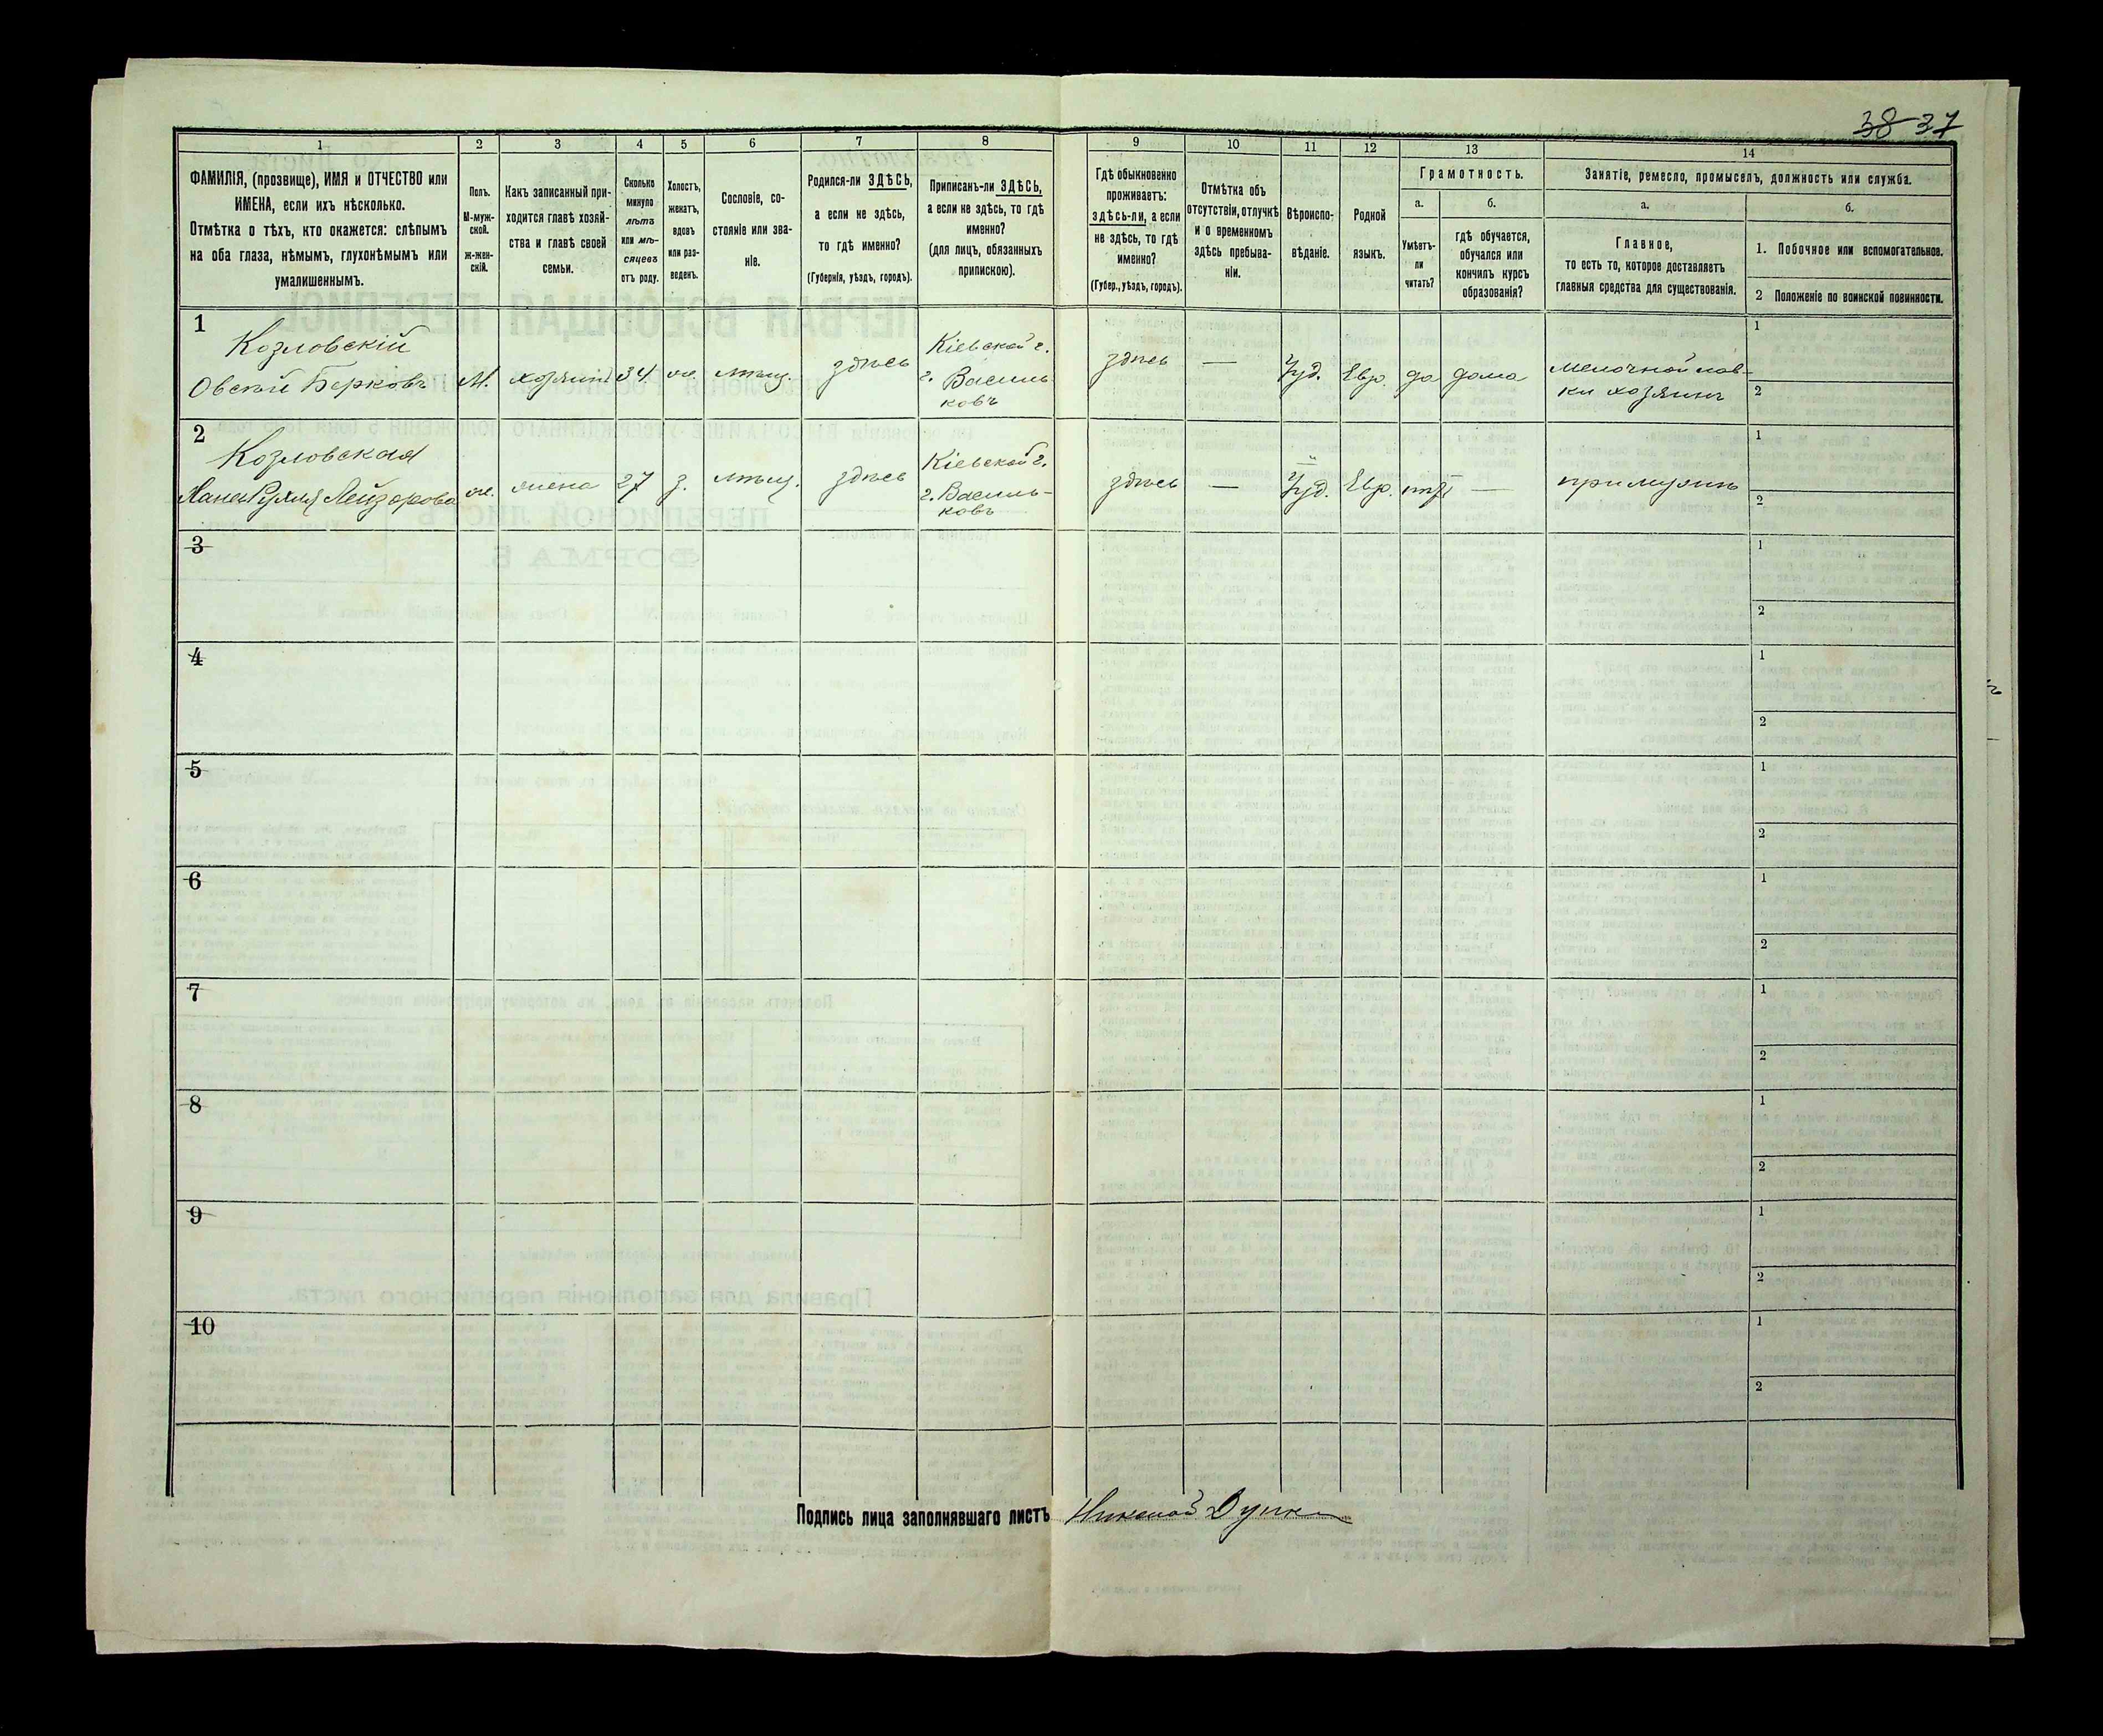 38 37
1
2
3
4
5
6
7
8
9
10
11
12
13
14
ФАМИЛІЯ, (прозвище), ИМЯ и ОТЧЕСТВО или
ИМЕНА, если ихъ нѣсколько.
Отмѣтка о тѣхъ, кто окажется: слѣпымъ
на оба глаза, нѣмымъ, глухонѣмымъ или
умалишеннымъ.
Полъ.
М-муж-
ской.
ж-жен-
скій.
Какъ записанный при-
ходится главѣ хозяй-
ства и главѣ своей
семьи.
Сколько
минуло
лѣтъ
или мѣ-
сяцевъ
отъ роду.
Холостъ,
женатъ,
вдовъ
или раз-
веденъ.
Сословіе, со-
стояніе или зва-
ніе.
Родился-ли ЗДѢСЬ,
а если не здѣсь,
то гдѣ именно?
(Губернія, уѣздъ, городъ).
Приписанъ-ли ЗДѢСЬ,
а если не здѣсь, то гдѣ
именно?
(для лицъ, обязанныхъ
припискою).
Гдѣ обыкновенно
проживаетъ:
здѣсь-ли, а если
не здѣсь, то гдѣ
именно?
(Губер., уѣздъ, городъ).
Отмѣтка объ
отсутствіи, отлучкѣ
и о временномъ
здѣсь пребыва-
ніи.
Вѣроиспо-
вѣданіе.
Родной
языкъ.
Грамотность.
а.
Умѣетъ-
ли
читать?
б.
гдѣ обучается,
обучался или
кончилъ курсъ
образованія?
Занятіе, ремесло, промыселъ, должность или служба.
а.
Главное,
то есть то, которое доставляетъ
главныя средства для существованія.
б.
1. Побочное или вспомогательное.
2 Положеніе по воинской повинности.
1
Козловскій
Овсѣй Берковъ
М.
хозяинъ
34
ж.
мѣщ.
здѣсь
Кіевской г.
г. Василь
ковъ
здѣсь
—
Іуд.
Евр.
да
дома
мелочной лав-
ки хозяинъ
1
2
2
Козловская
Хана Рухля Лейзорова
ж.
жена
27
з.
мѣщ.
здѣсь
Кіевской г.
г. Василь-
ковъ
здѣсь
—
Іуд.
Евр.
нѣтъ
—
при мужѣ
1
2
3
1
2
4
1
2
5
1
2
6
1
2
7
1
2
8
1
2
9
1
2
10
1
2
Подпись лица заполнявшаго листъ